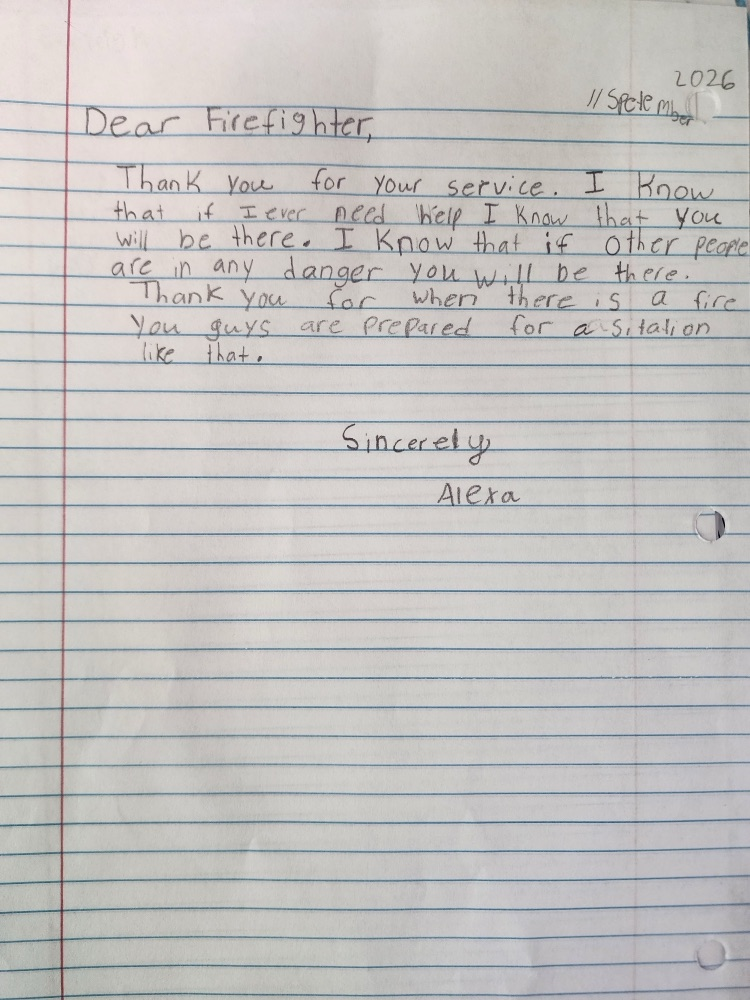 2026
11 Spetember
Dear Firefighter,
Thank you for your service. I know
that if I ever need help I know that you
will be there. I know that if other people
are in any danger you will be there.
Thank you for when there is a fire
you guys are prepared for a sitation
like that.
Sincerely
Alexa